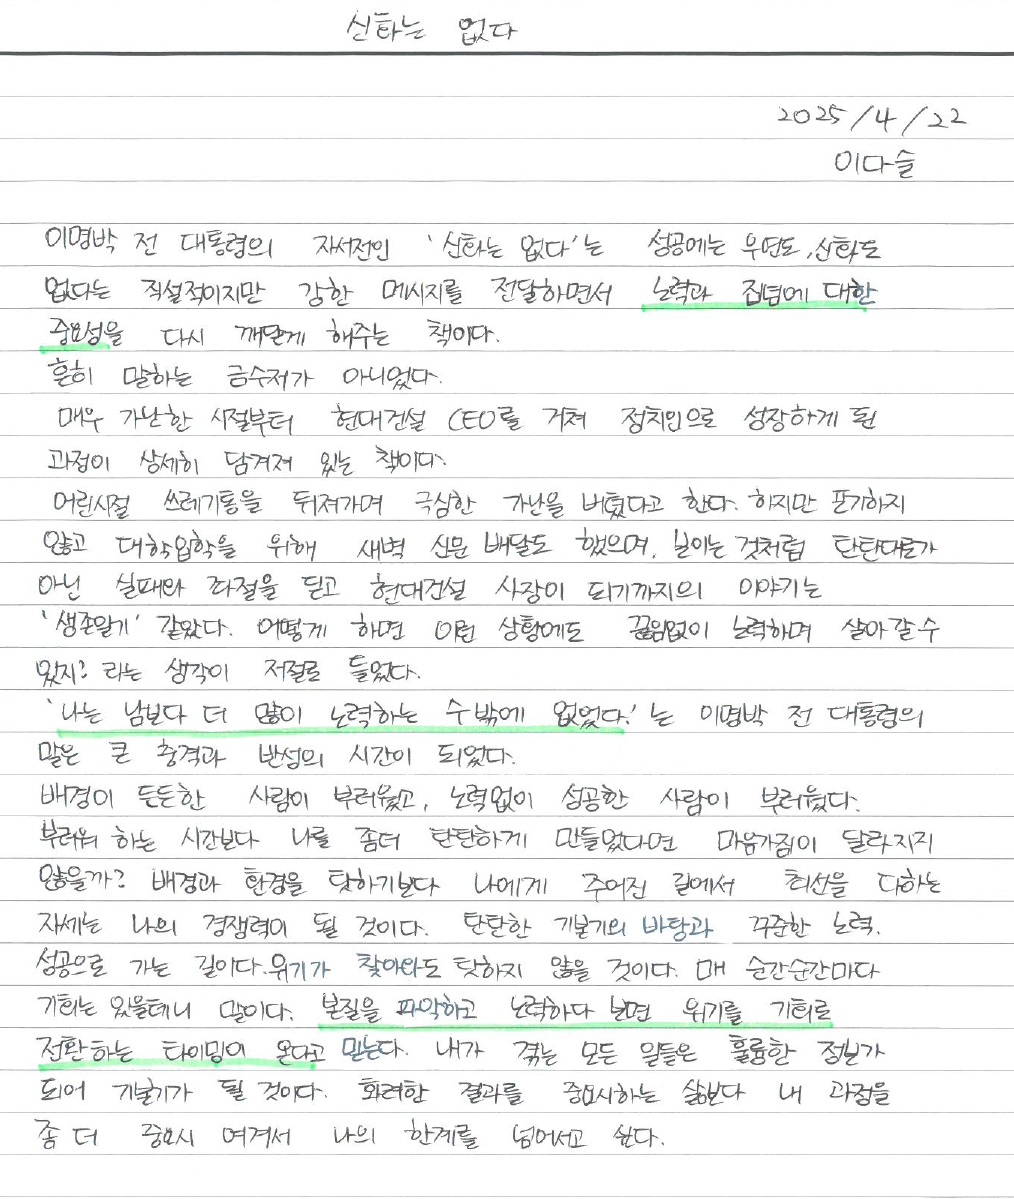 신화는 없다
2025/4/22
이다슬
이명박 전 대통령의 자서전인 '신화는 없다'는 성공에는 우연도, 신화도
없다는 직설적이지만 강한 메시지를 전달하면서 노력과 집념에 대한
중요성을 다시 깨닫게 해주는 책이다.
흔히 말하는 금수저가 아니었다.
매우 가난한 시절부터 현대건설 CEO를 거쳐 정치인으로 성장하게 된
과정이 상세히 담겨져 있는 책이다.
어린시절 쓰레기통을 뒤져가며 극심한 가난을 버텼다고 한다. 하지만 포기하지
않고 대학입학을 위해 새벽 신문 배달도 했으며, 보이는 것처럼 탄탄대로가
아닌 실패와 좌절을 딛고 현대건설 사장이 되기까지의 이야기는
'생존일기' 같았다. 어떻게 하면 이런 상황에도 끊임없이 노력하며 살아갈수
있지? 라는 생각이 저절로 들었다.
'나는 남보다 더 많이 노력하는 수밖에 없었다.'는 이명박 전 대통령의
말은 큰 충격과 반성의 시간이 되었다.
배경이 든든한 사람이 부러웠고, 노력없이 성공한 사람이 부러웠다.
부러워 하는 시간보다 나를 좀더 탄탄하게 만들었다면 마음가짐이 달라지지
않을까? 배경과 환경을 탓하기보다 나에게 주어진 길에서 최선을 다하는
자세는 나의 경쟁력이 될 것이다. 탄탄한 기본기의 바탕과 꾸준한 노력.
성공으로 가는 길이다. 위기가 찾아와도 탓하지 않을 것이다. 매 순간순간마다
기회는 있을테니 말이다. 본질을 파악하고 노력하다 보면 위기를 기회로
전환하는 타이밍이 온다고 믿는다. 내가 겪는 모든 일들은 훌륭한 정보가
되어 기본기가 될 것이다. 화려한 결과를 중요시하는 삶보다 내 과정을
좀 더 중요시 여겨서 나의 한계를 넘어서고 싶다.